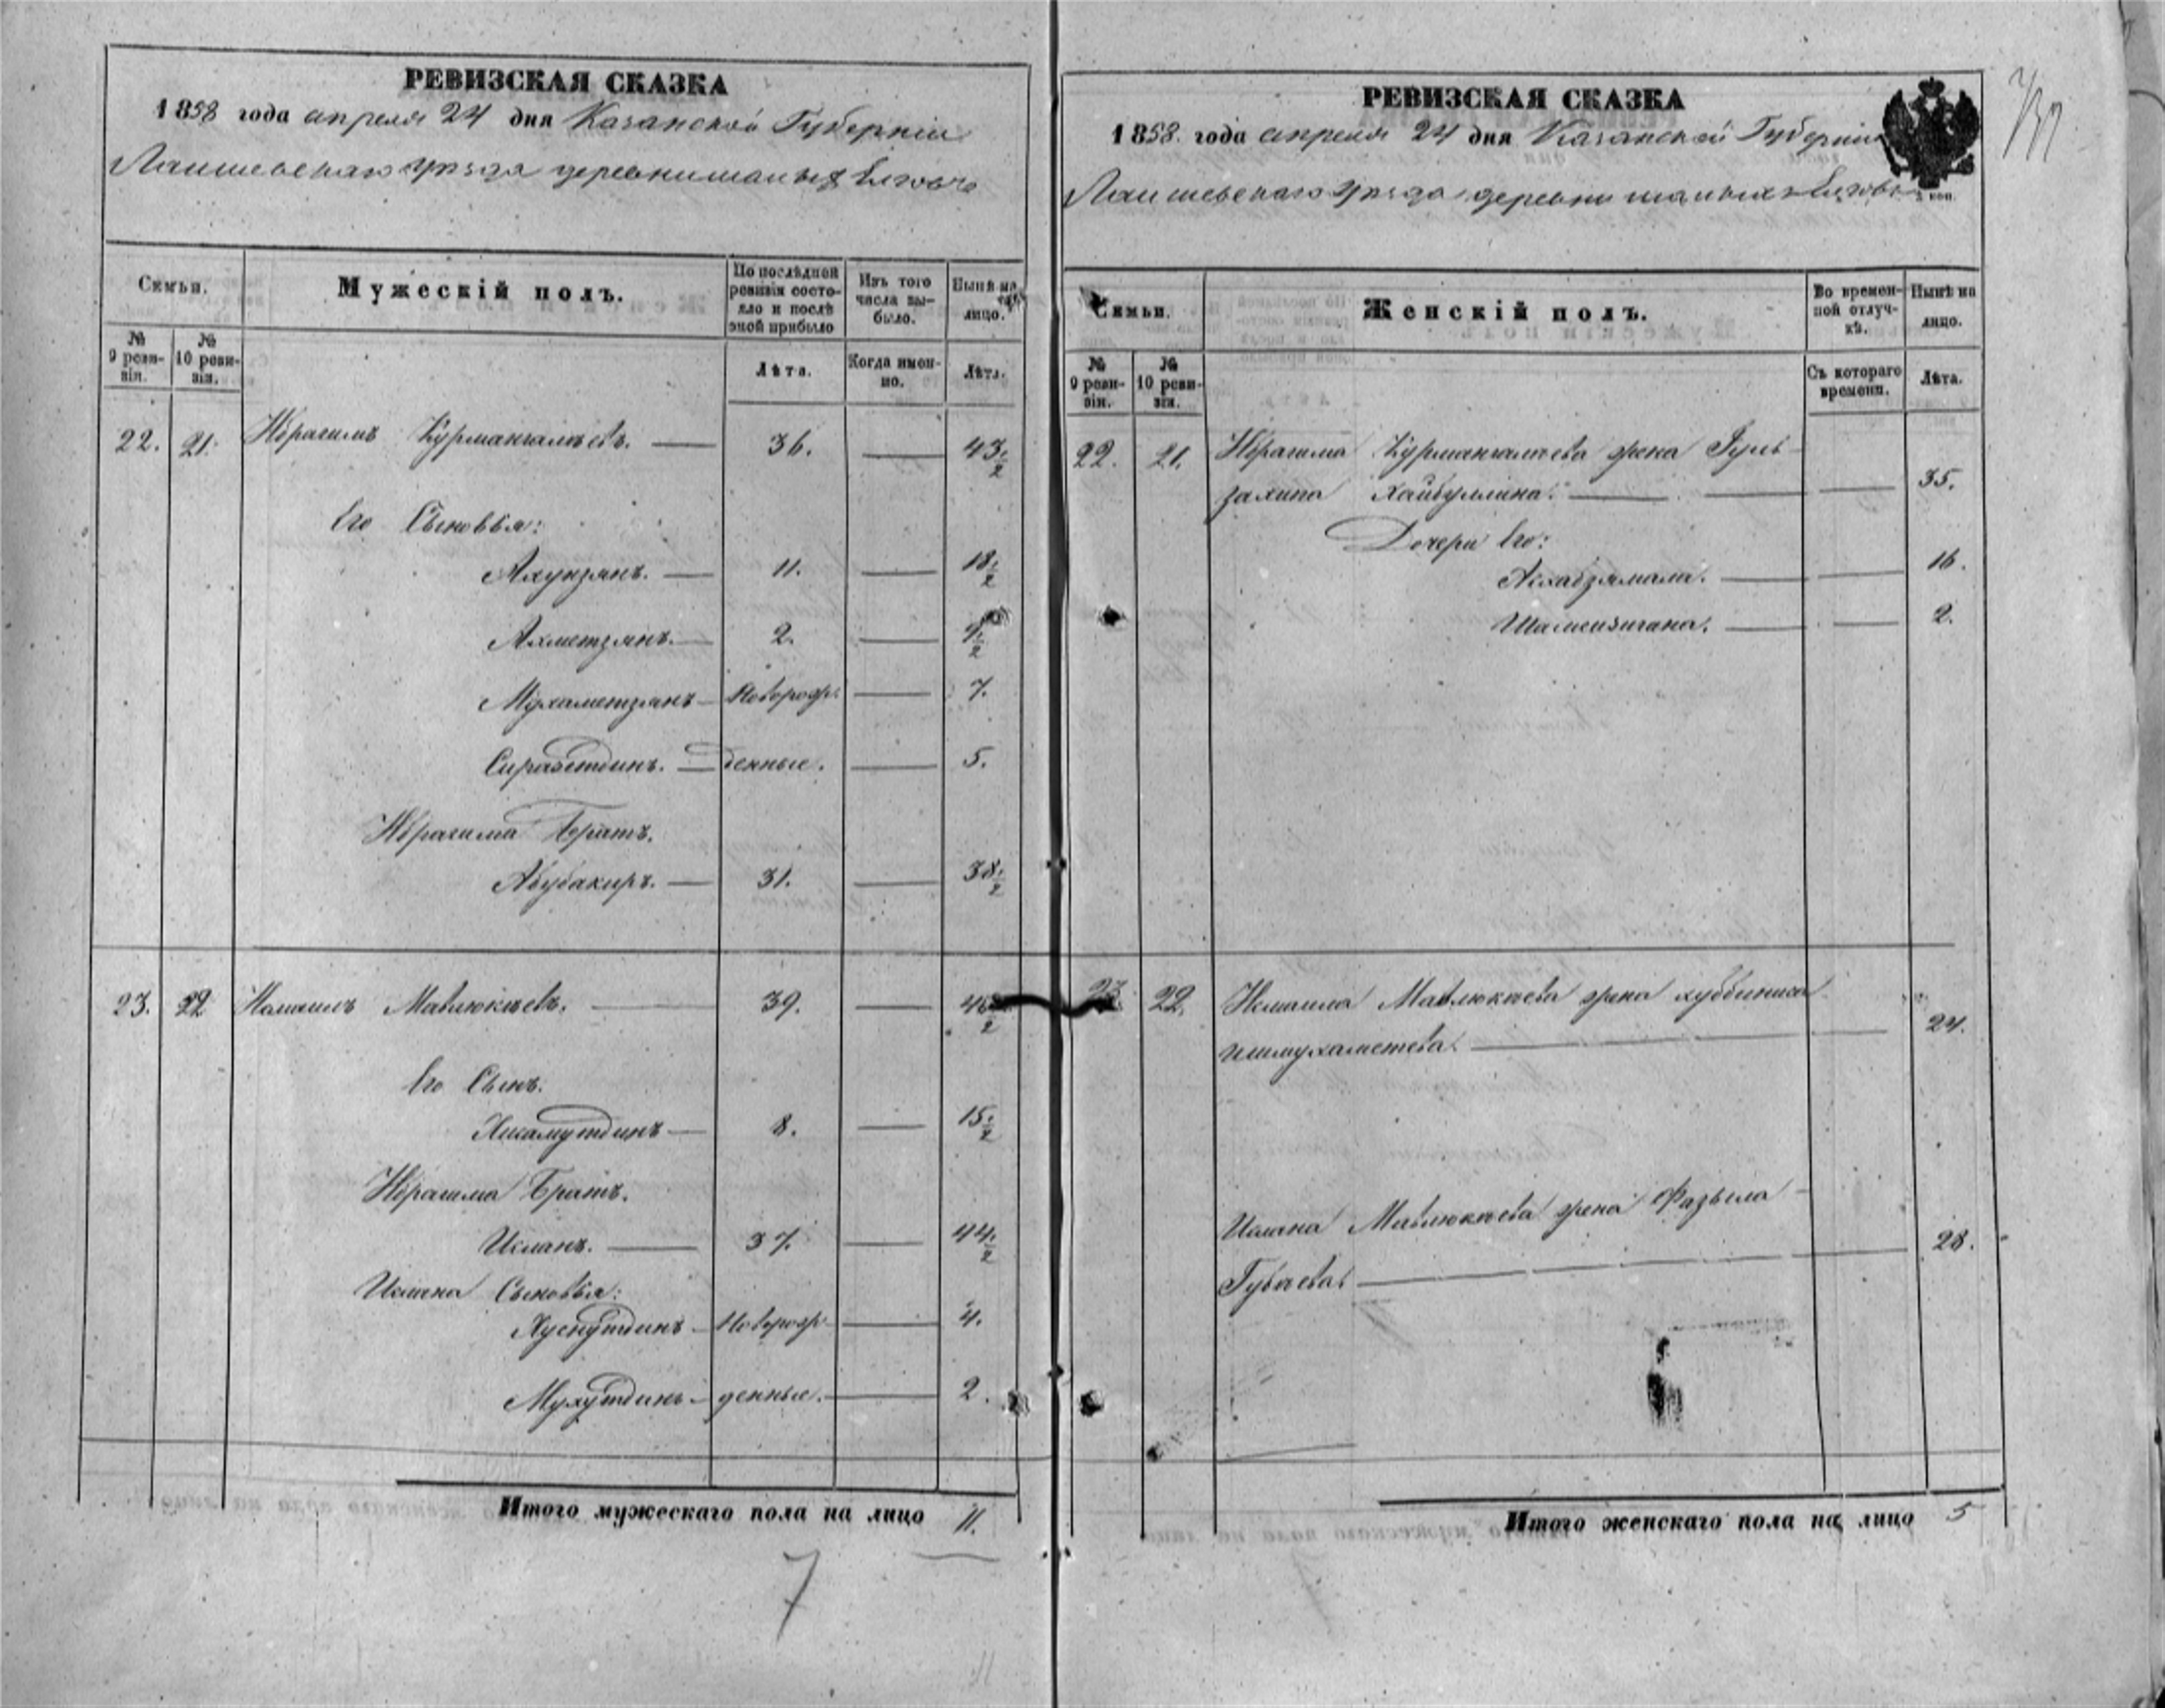 РЕВИЗСКАЯ СКАЗКА
1858 года апреля 24 дня Казанской Губернiи
Лаишевскаго уѣзда деревни малыхъ Елговъ
Семьи.
Мужескiй полъ.
По послѣдней ревизiи состояло и послѣ оной прибыло
Изъ того числа выбыло.
Нынѣ на лицо.
№ 9 ревизiи.
№ 10 ревизiи.
Лѣта.
Когда именно.
Лѣта.
22. 21. Ибрагимъ Курмангалѣевъ. — 36. — 43 1/2
Его Сыновья:
Ахунзянъ. — 11. — 18 1/2
Ахметзянъ. — 2. — 9 1/2
Мухаметзянъ — Новорож — 7.
Сиразетдинъ. — денные. — 5.
Ибрагима Братъ.
Абубакиръ. — 31. — 38 1/2
23. 22 Исмаилъ Мавлюкѣевъ. — 39. — 46 1/2
Его Сынъ.
Хисамутдинъ — 8. — 15 1/2
Ибрагима Братъ.
Исланъ. — 37. — 44 1/2
Ислана Сыновья:
Хуснутдинъ — Новорож — 4.
Мухутдинъ — денные. — 2.
Итого мужескаго пола на лицо 11.
7
РЕВИЗСКАЯ СКАЗКА
1858 года апреля 24 дня Казанской Губернiи
Лаишевскаго уѣзда деревни малыхъ Елговъ
Семьи.
Женскiй полъ.
Во временной отлучкѣ.
Нынѣ на лицо.
№ 9 ревизiи.
№ 10 ревизiи.
Съ котораго времени.
Лѣта.
22. 21. Ибрагима Курмангалѣева жена Гуль-
захипа Хайбуллина. — — 35.
Дочери Его:
Асхабзямала. — — 16.
Шамсизигана. — — 2.
23. 22. Исмаила Мавлюкѣева жена хуббиниса
ишмухаметева. — 24.
Ислана Мавлюкѣева жена Фазыла
Губѣева. — 28.
Итого женскаго пола на лицо 5